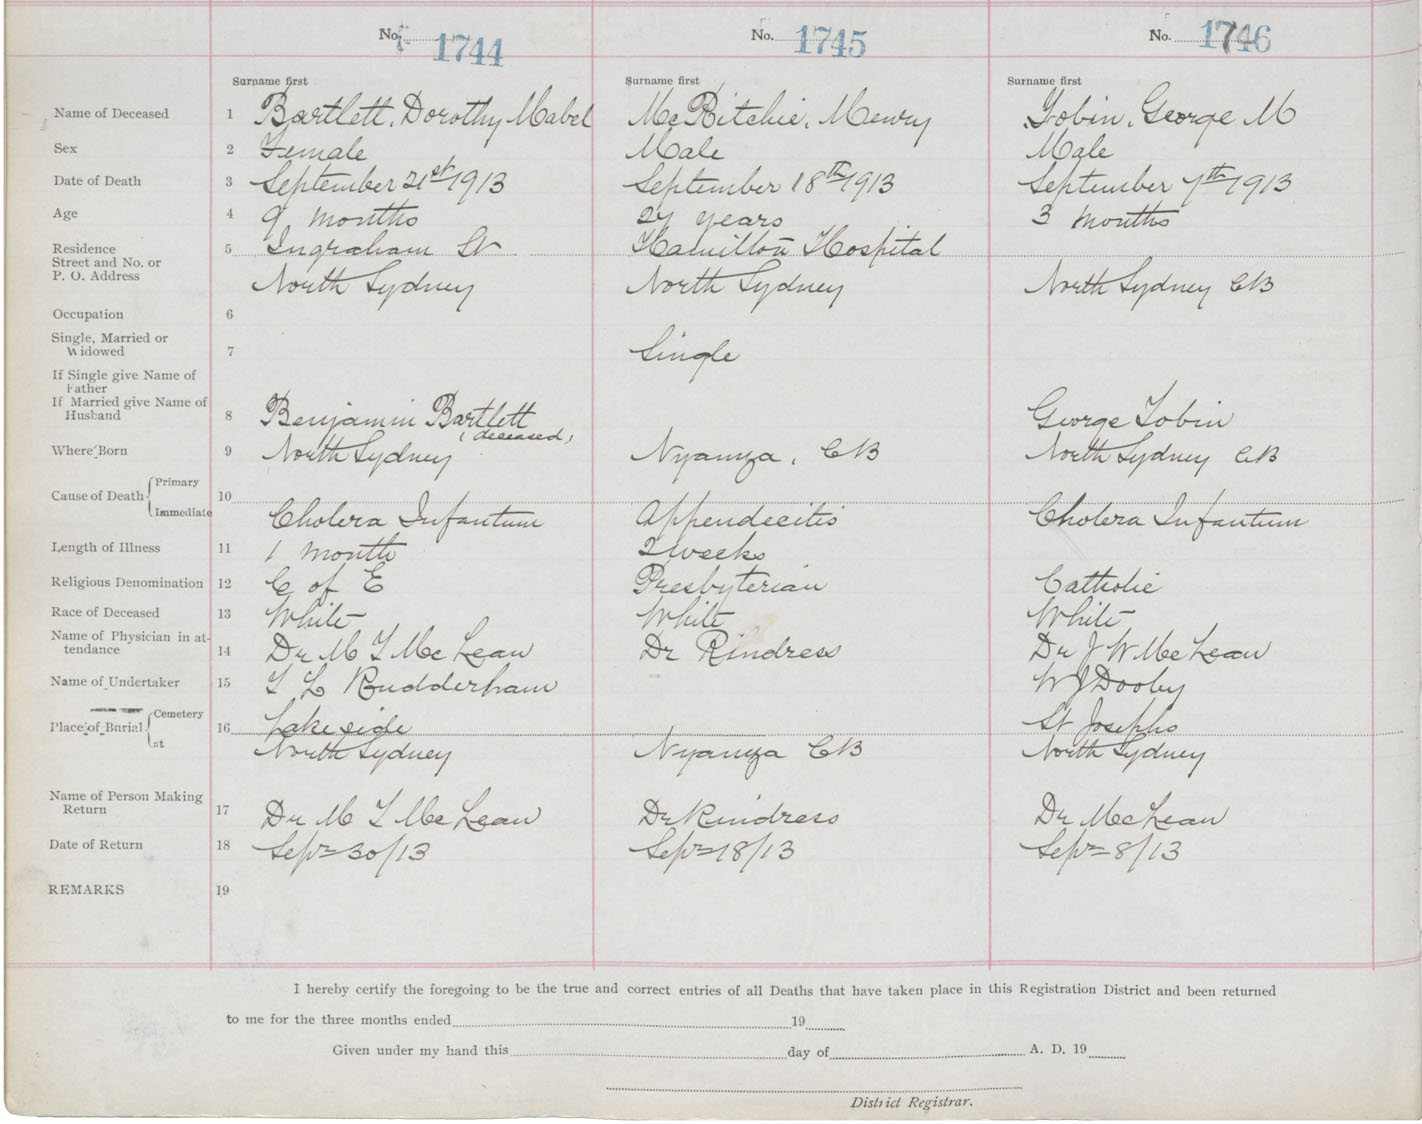 No. 1744 No. 1745 No. 1746
Surname first Surname first Surname first
Name of Deceased 1 Bartlett, Dorothy Mabel McRitchie, Henry Tobin, George M
Sex 2 Female Male Male
Date of Death 3 September 21st 1913 September 18th 1913 September 7th 1913
Age 4 9 months 27 years 3 months
Residence 5 Ingraham St Hamilton Hospital
Street and No. or
P. O. Address North Sydney North Sydney North Sydney CB
Occupation 6
Single, Married or
Widowed 7 Single
If Single give Name of
Father
If Married give Name of
Husband 8 Benjamin Bartlett George Tobin
(deceased)
Where Born 9 North Sydney Nyanza, CB North Sydney CB
Primary
Cause of Death 10
Immediate Cholera Infantum Appendecitis Cholera Infantum
Length of Illness 11 1 month 2 weeks
Religious Denomination 12 C of E Presbyterian Catholic
Race of Deceased 13 White White White
Name of Physician in at-
tendance 14 Dr M T McLean Dr Rindress Dr J W McLean
Name of Undertaker 15 T L Rudderham W J Dooby
Cemetery
Place of Burial 16 Lakeside St Josephs
at North Sydney Nyanza CB North Sydney
Name of Person Making
Return 17 Dr M T McLean Dr Rindress Dr McLean
Date of Return 18 Sept 30/13 Sept 18/13 Sept 8/13
REMARKS 19
I hereby certify the foregoing to be the true and correct entries of all Deaths that have taken place in this Registration District and been returned
to me for the three months ended 19
Given under my hand this day of A. D. 19
District Registrar.